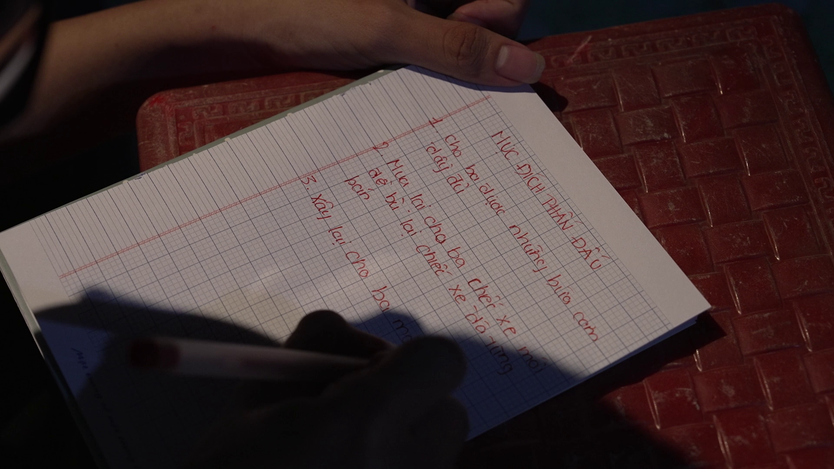 MỤC ĐÍCH PHẤN ĐẤU
1. Cho ba được những bữa cơm
đầy đủ
2. Mua lại cho ba chiếc xe mới
để bù lại chiếc xe đã từng
bán
3. Xây lại cho ba